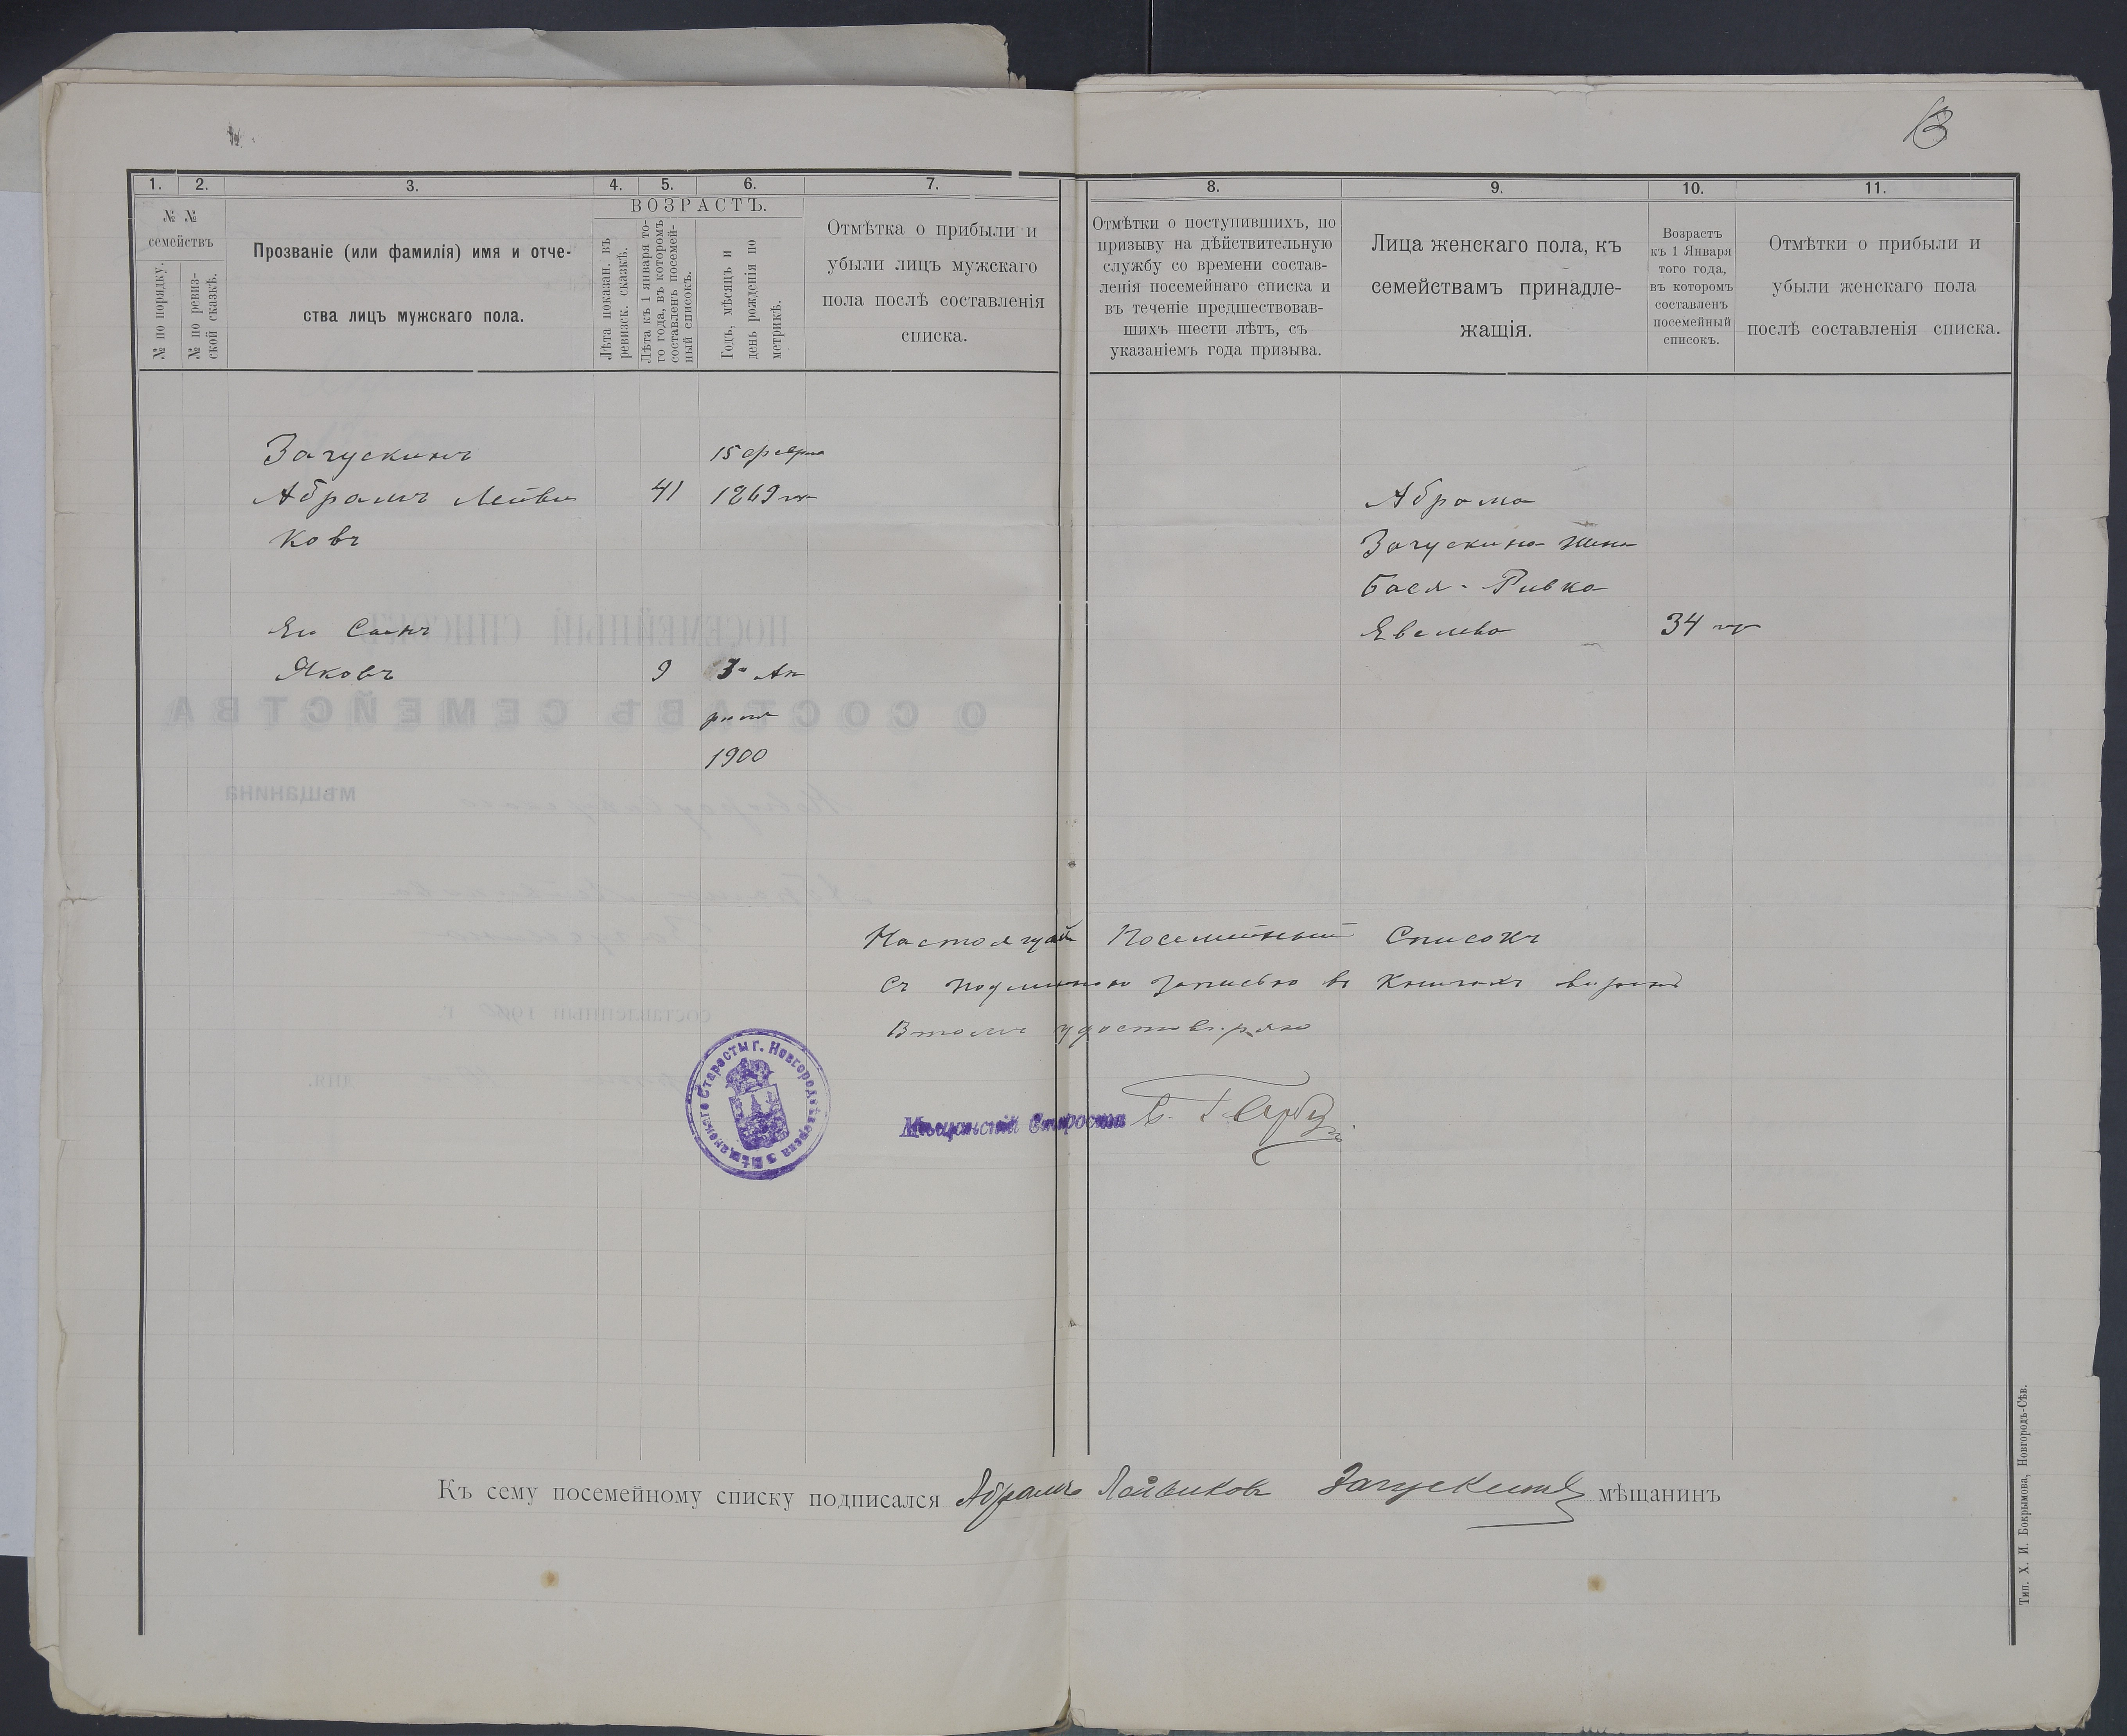 13
1. 2. 3. 4. 5. 6. 7. 8. 9. 10. 11.
№ №
семействъ
№ по порядку.
№ по ревиз-
ской сказкѣ.
Прозваніе (или фамилія) имя и отче-
ства лицъ мужскаго пола.
ВОЗРАСТЪ.
Лѣта показан. въ
ревизск. сказкѣ.
Лѣта къ 1 января то-
го года, въ которомъ
составленъ посемей-
ный списокъ.
Годъ, мѣсяцъ и
день рожденія по
метрикѣ.
Отмѣтка о прибыли и
убыли лицъ мужскаго
пола послѣ составленія
списка.
Отмѣтки о поступившихъ, по
призыву на дѣйствительную
службу со времени состав-
ленія посемейнаго списка и
въ теченіе предшествовав-
шихъ шести лѣтъ, съ
указаніемъ года призыва.
Лица женскаго пола, къ
семействамъ принадле-
жащія.
Возрастъ
къ 1 Января
того года,
въ которомъ
составленъ
посемейный
списокъ.
Отмѣтки о прибыли и
убыли женскаго пола
послѣ составленія списка.
Загускинъ 15 февра
Абрамъ Лейви 41 1869
ковъ
Его Сынъ
Яковъ 9 3 Ап
реля
1900
Абрама
Загускина жена
Бася-Ривка
Евелева 34
Настоящій Посемейный Списокъ
Съ подлинною записью въ Книгахъ вѣренъ
Втомъ удостовѣряю
Мѣщанскій Староста
Мѣщанскаго Старосты г. Новгородсѣверска
Къ сему посемейному списку подписался Абрамъ Лейвиковъ Загускинъ мѣщанинъ
Тип. Х. И. Бокрымова, Новгородъ-Сѣв.